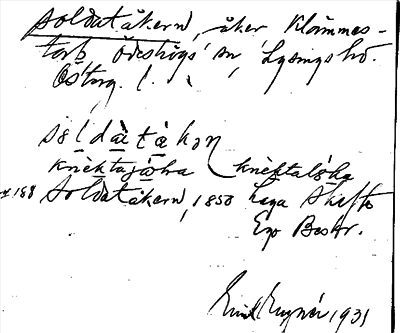 Soldatåkern, åker Klämmes-
torp Ödeshögs sn, Lysings hd.
Österg. l.
sòldàtákọn
knèktajóha knèktalóha
* 188 Soldatåkern, 1850 Laga Skifte
Ego Beskr.
1931